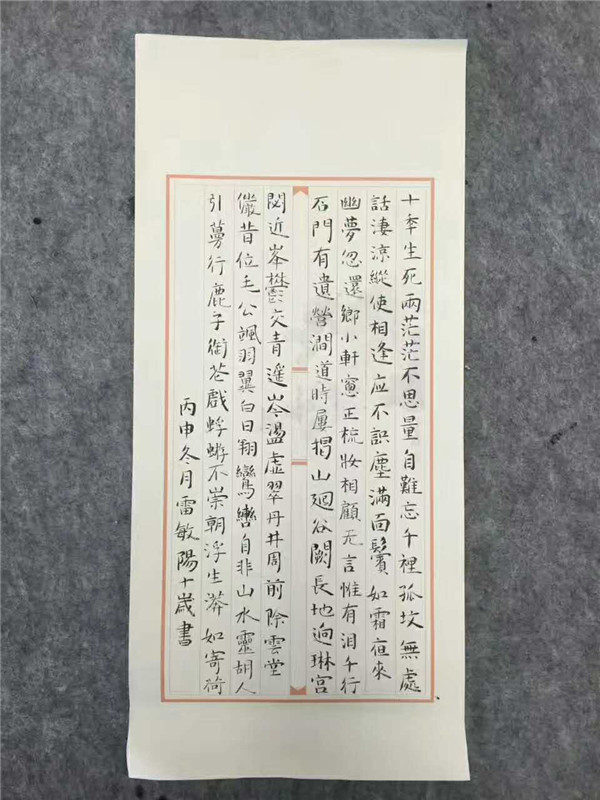 十秊生死兩茫茫不思量自難忘千裡孤坟無處
話淒涼縱使相逢应不識塵滿面鬢如霜夜來
幽夢忽還鄉小軒窓正梳妝相顧无言惟有泪千行
石門有遺營澗道時屢揭山迴谷闕長地逈琳宮
閟近峯欝交青遙岑溫虛翠丹井周前除雲堂
儼昔位毛公颯羽翼白日翔鸞轡自非山水靈胡人
引蔓行鹿子銜芲戲蜉蝣不崇朝浮生莽如寄荷
丙申冬月雷敏陽十歲書